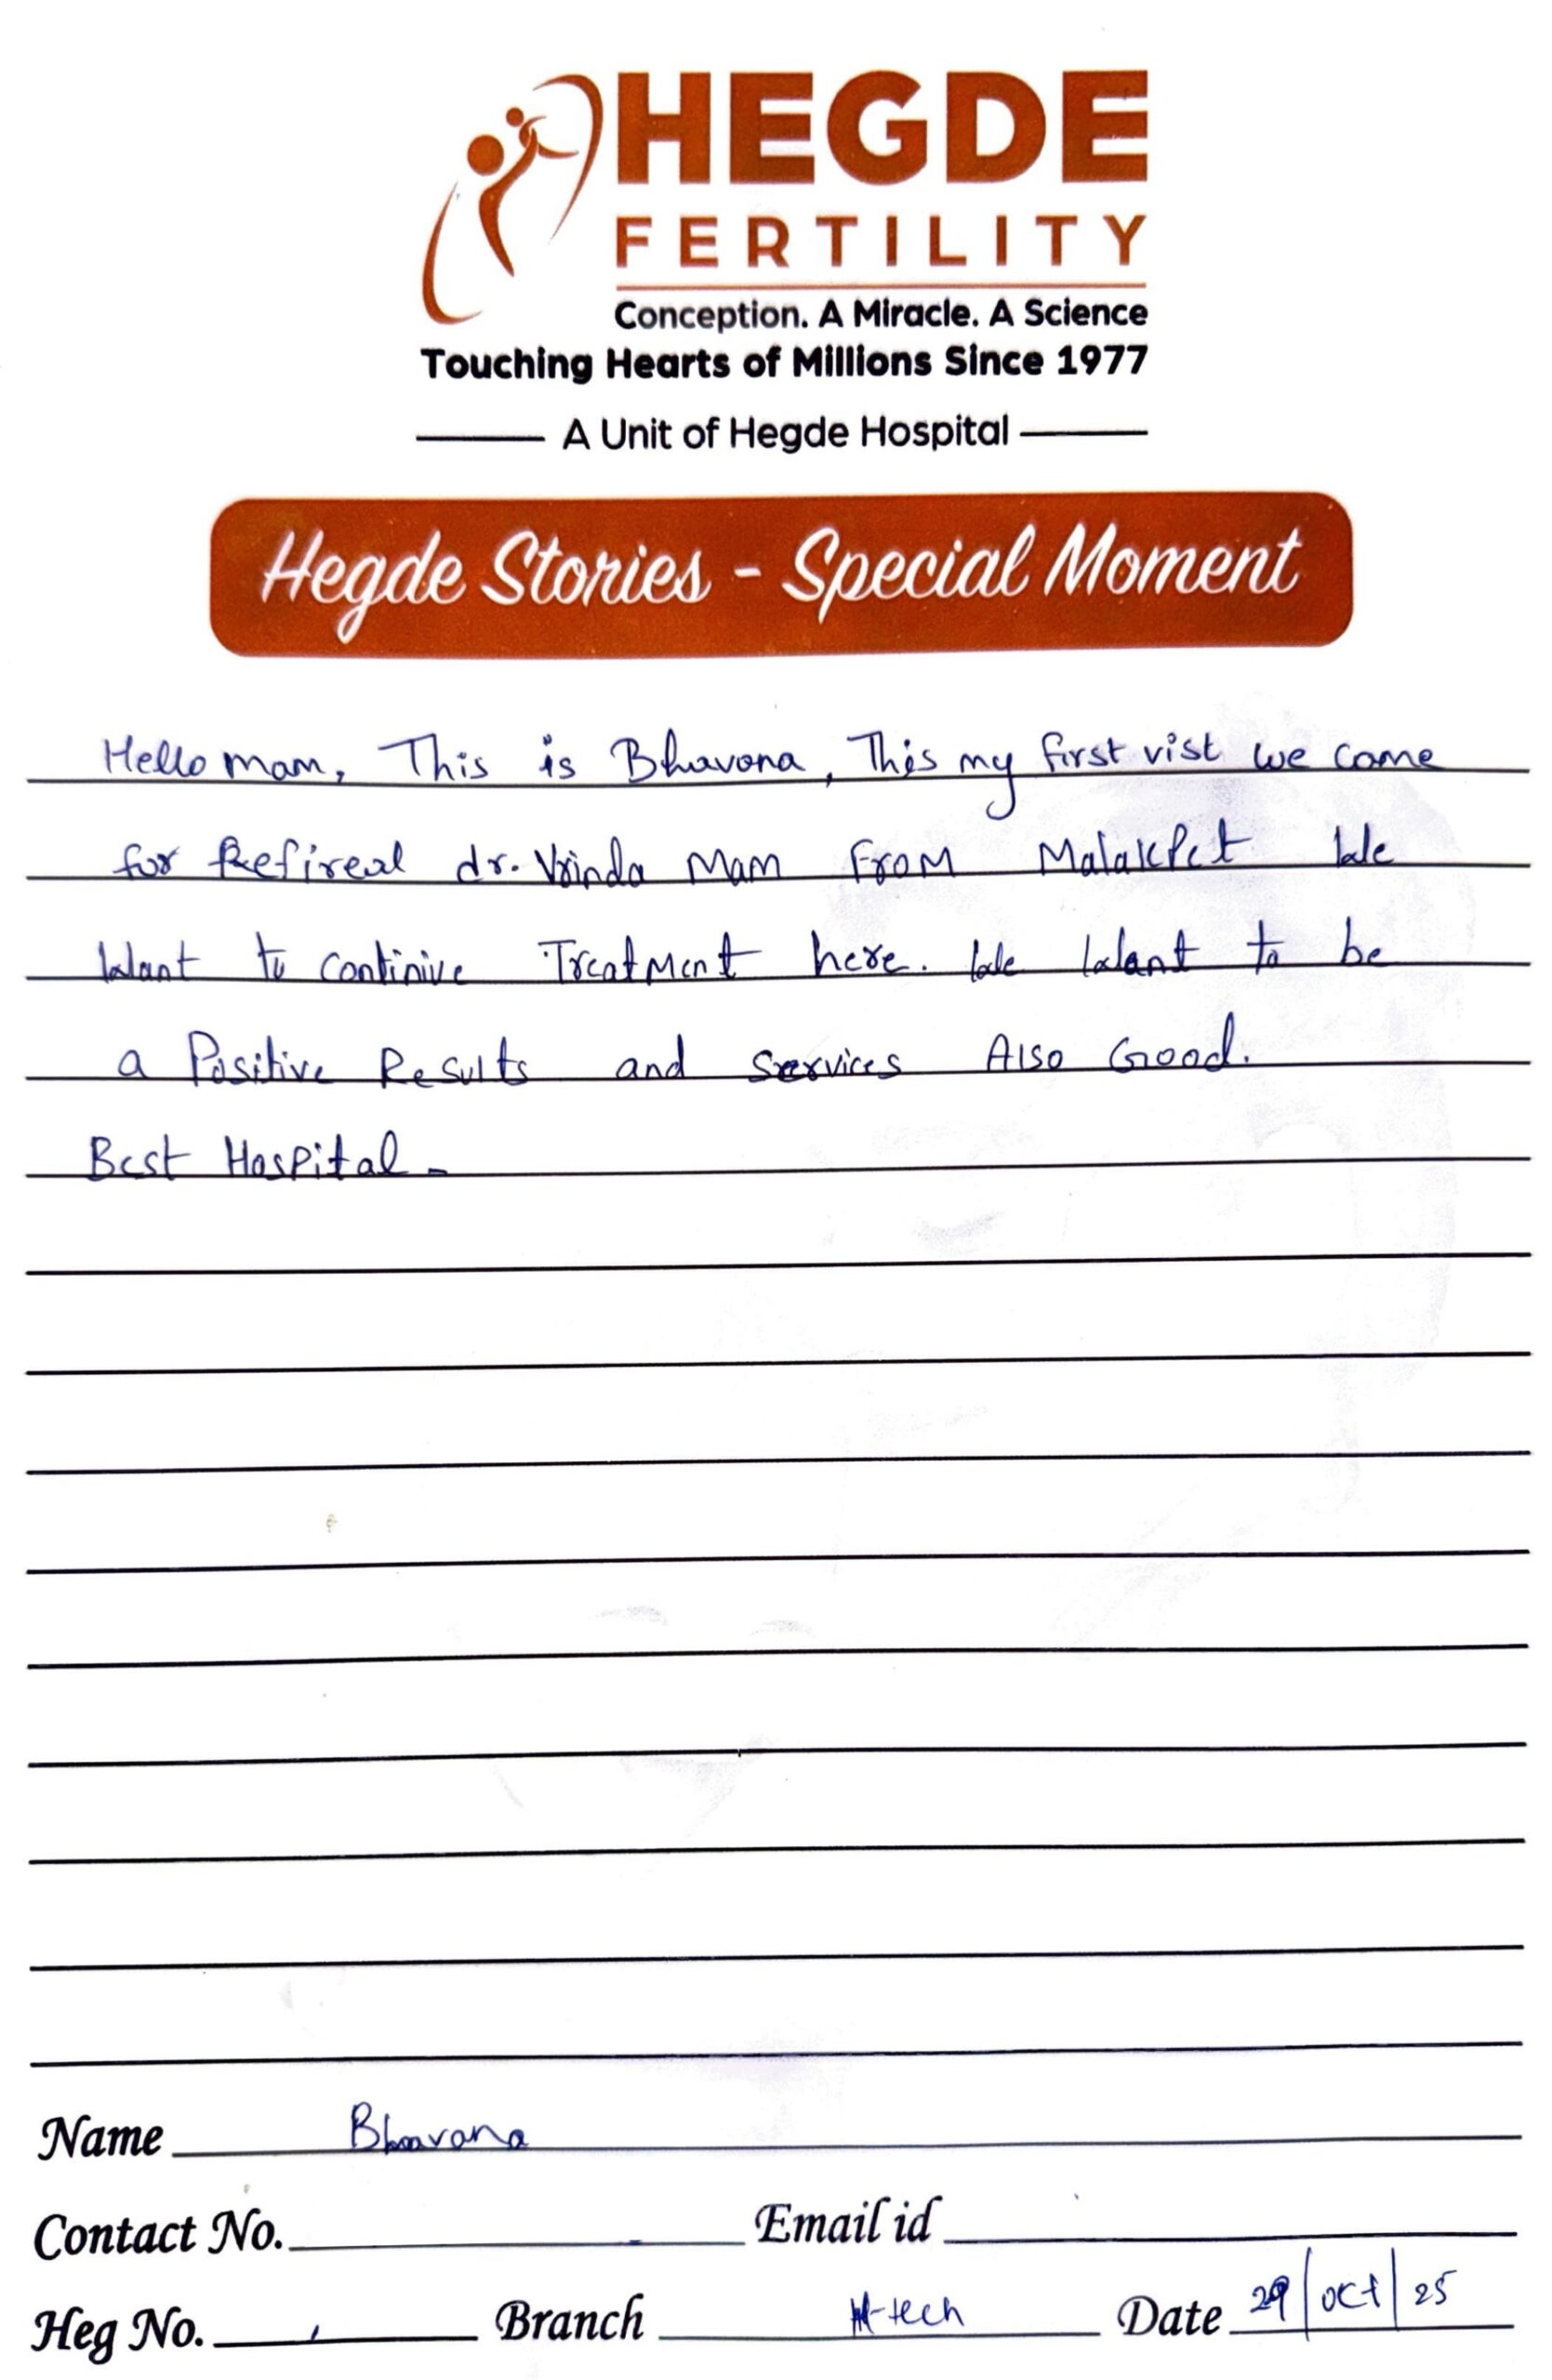 HEGDE
FERTILITY
Conception. A Miracle. A Science
Touching Hearts of Millions Since 1977
A Unit of Hegde Hospital
Hegde Stories - Special Moment
Hello mam, This is Bhavana, This my first vist we came
for Refireal dr. Vrinda Mam From Malakpet We
Want to continive Treatment here. We Want to be
a Positive Results and services Also Good.
Best Hospital -
Name Bhavana
Contact No. Email id
Heg No. Branch H-tech Date 29/oct/25